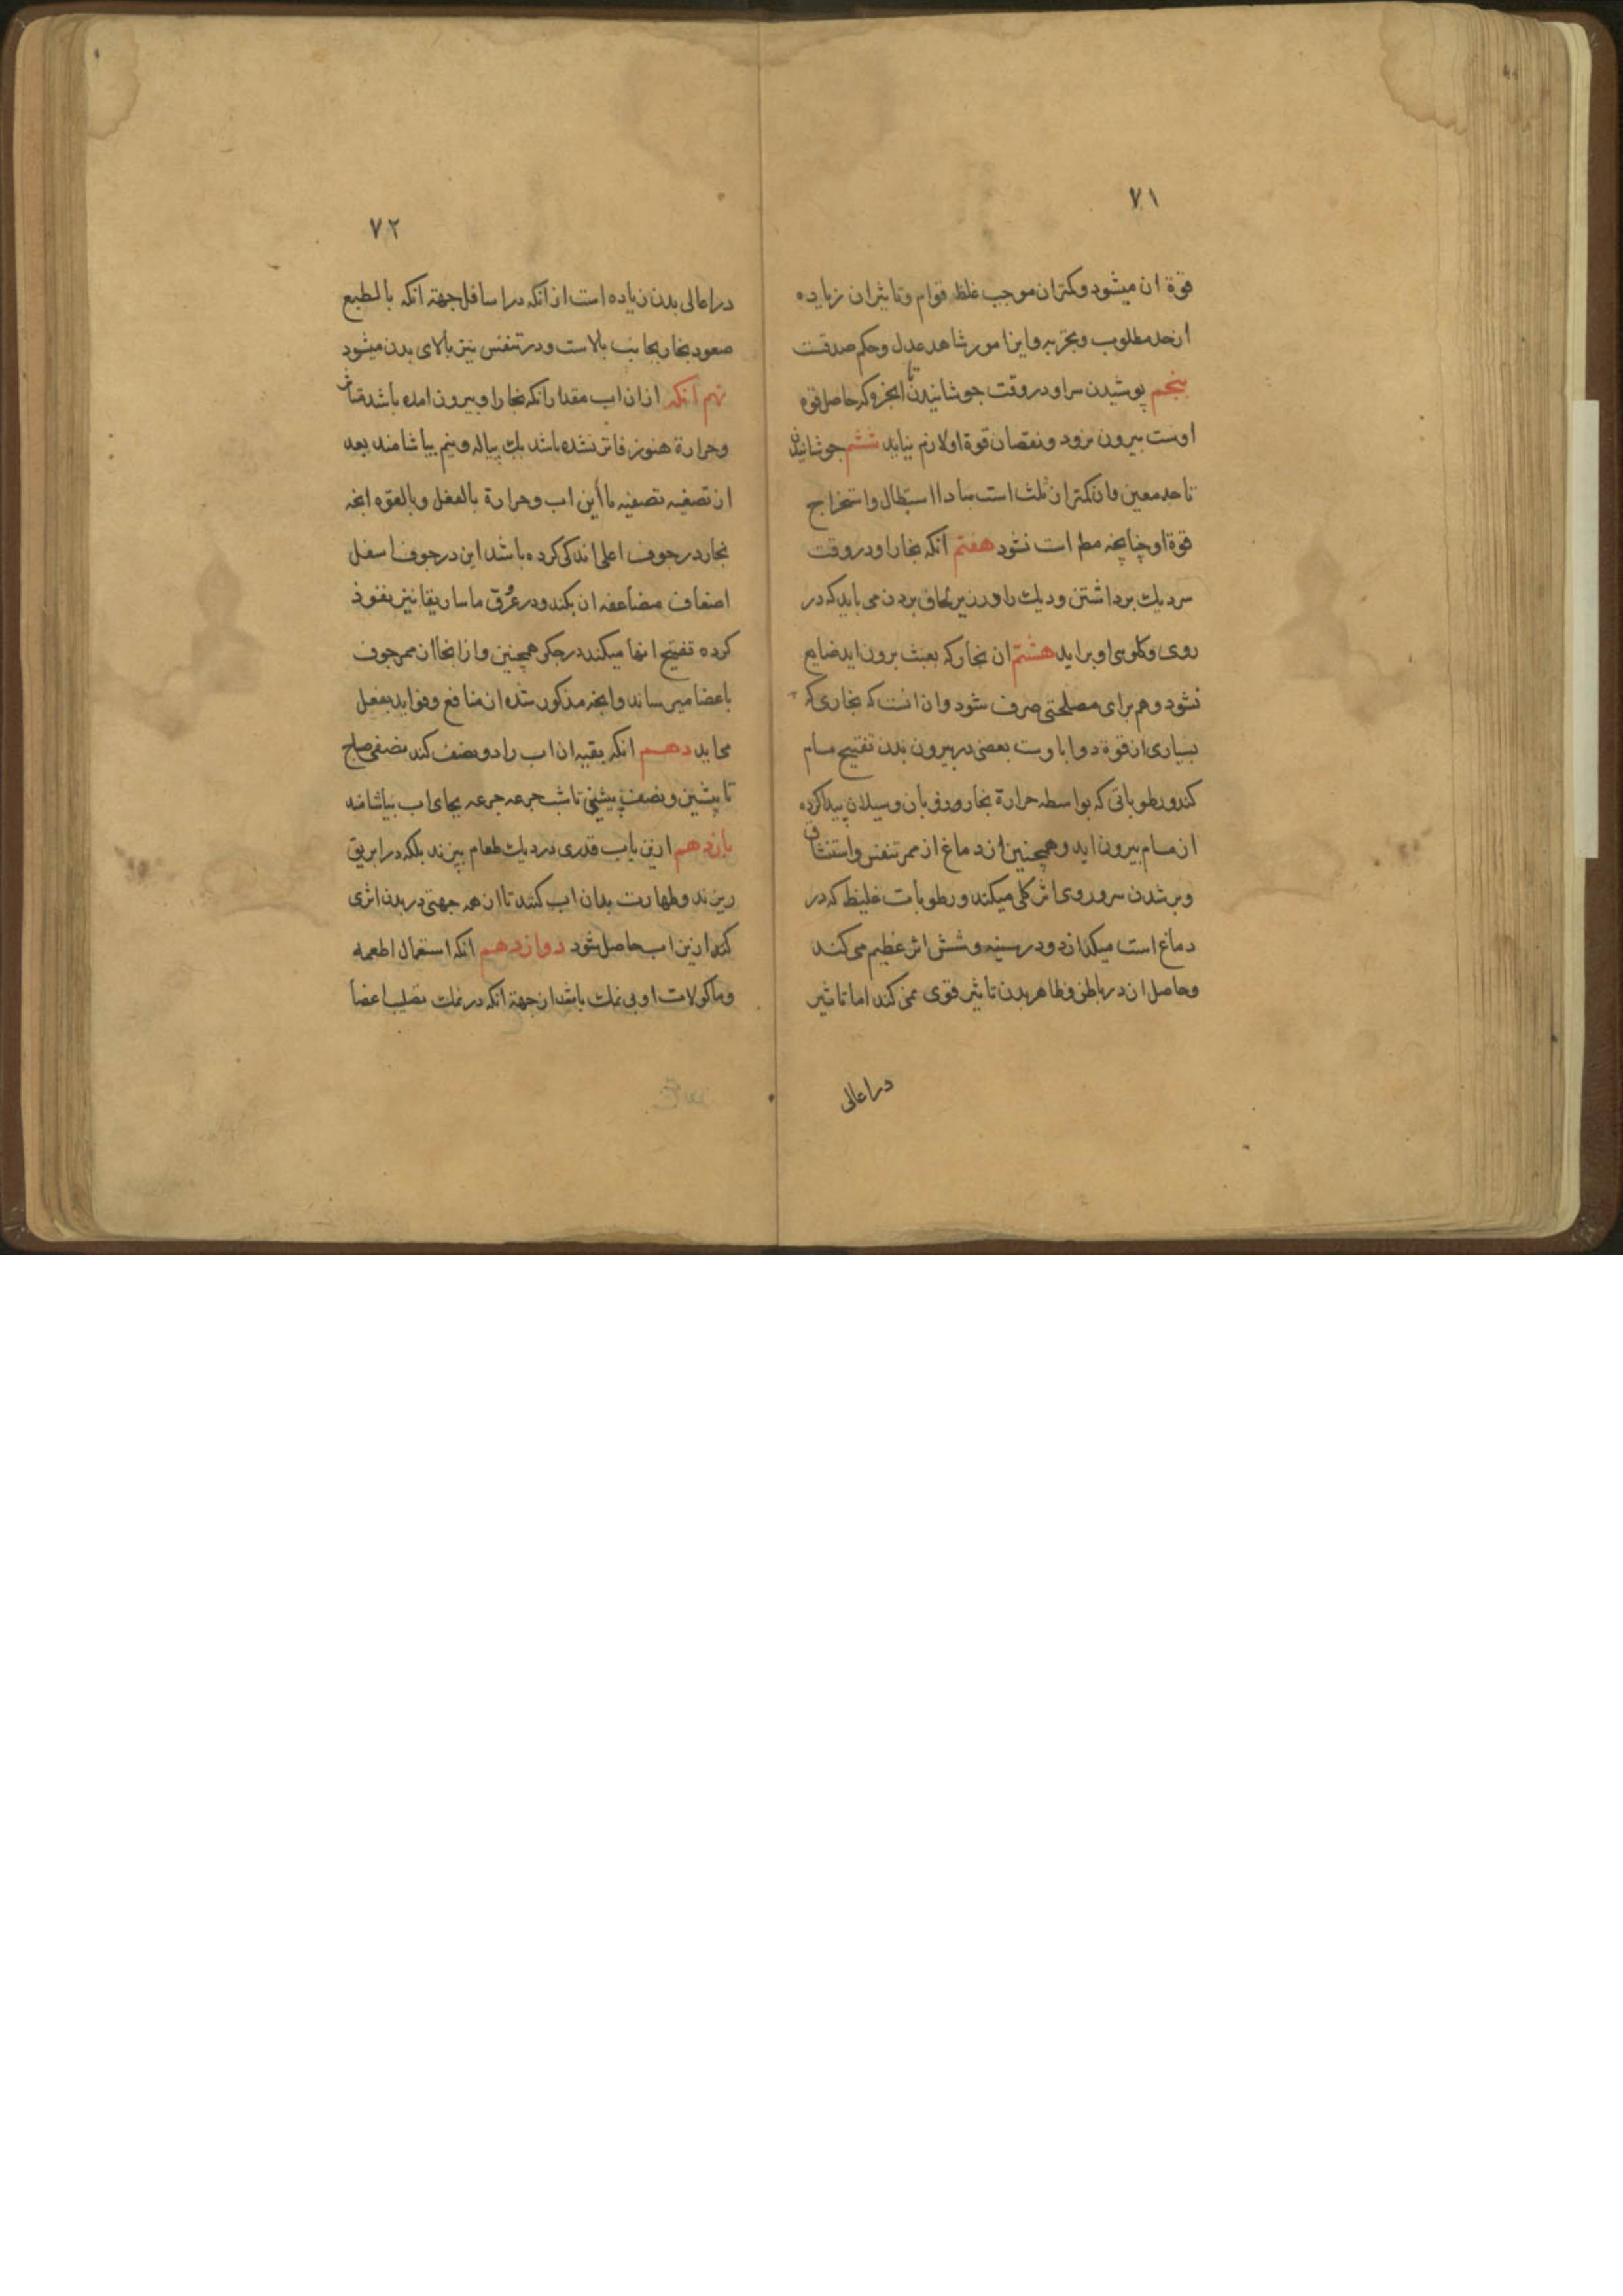 ۷۱
قوة ان میشود و کمتر ان موجب غلظ قوام و تاثیر ان زیاده
از حد مطلوب و تجربه و این امور شاهد عدل و حکم صدقست
پنجم پوشیدن سر او در وقت جوشانیدن تا ابخره که حاصل قوه
اوست بیرون نرود و نقصان قوة او لازم نیاید ششم جوشانیدن
تا حد معین و ان کمتر از ثلث است مبادا استبطال و استخراج
قوة او چنانچه مطر است نشود هفتم انکه بخار او در وقت
سر دیك برداشتن و دیك را در زیر لحاف بردن می باید که در
روی و کلوی او براید هشتم ان بخار که بعبث برون اید ضایع
نشود و هم برای مصلحتی صرف شود و ان انست که بخاری که
بسیاری از قوة دوا با وست بعضی در بیرون بدن تفتیح مسام
کند و رطوباتی که بواسطه حرارة بخار و ذوبان و سیلان پیدا کرده
از مسام بیرون اید و همچنین از دماغ از ممر تنفس و استنشاق
و بر شدن سر و روی اثر کلی میکند و رطوبات غلیظ که در
دماغ است میکدازد و در سینه و شش اثر عظیم می کند
و حاصل ان در باطن و ظاهر بدن تاثیر قوی می کند اما تاثیر
در اعالی
۷۲
در اعالی بدن زیاده است از انکه در اسافل جهة انکه بالطبع
صعود بخار بجانب بالاست و در تنفس نیز بالای بدن میشود
نهم انکه از ان اب مقدار انکه بخار او بیرون امده باشد
و حرارة هنوز فاتر نشده باشد یك پیاله و نیم بیاشامند بعد
از تصفیه تصفیه با این اب و حرارة بالفعل و بالقوه انچه
بخار در جوف اعلی اندکی کرده باشد این در جوف اسفل
اضعاف مضاعفه ان بکند و در عرق ماساریقا نیز نفوذ
کرده تفتیح انها میکند در جکر همچنین و از انجا از ممر جوف
باعضا میرساند و انچه مذکور شده از منافع و فواید بفعل
می اید دهم انکه بقیه ان اب را دو نصف کند نصفی صباح
تا پیشین و نصف پیشین تا شب جرعه جرعه بجای اب بیاشامند
یازدهم ازین یاب قدری در دیك طعام بپزند بلکه در ابریق
ریزند و طهارت بدان اب کنند تا از همه جهتی در بدن اثری
کند ازین اب حاصل شود دوازدهم انکه استعمال اطعمه
و ماکولات او بی نمك باشد از جهة انکه در نمك تصلیب اعضا